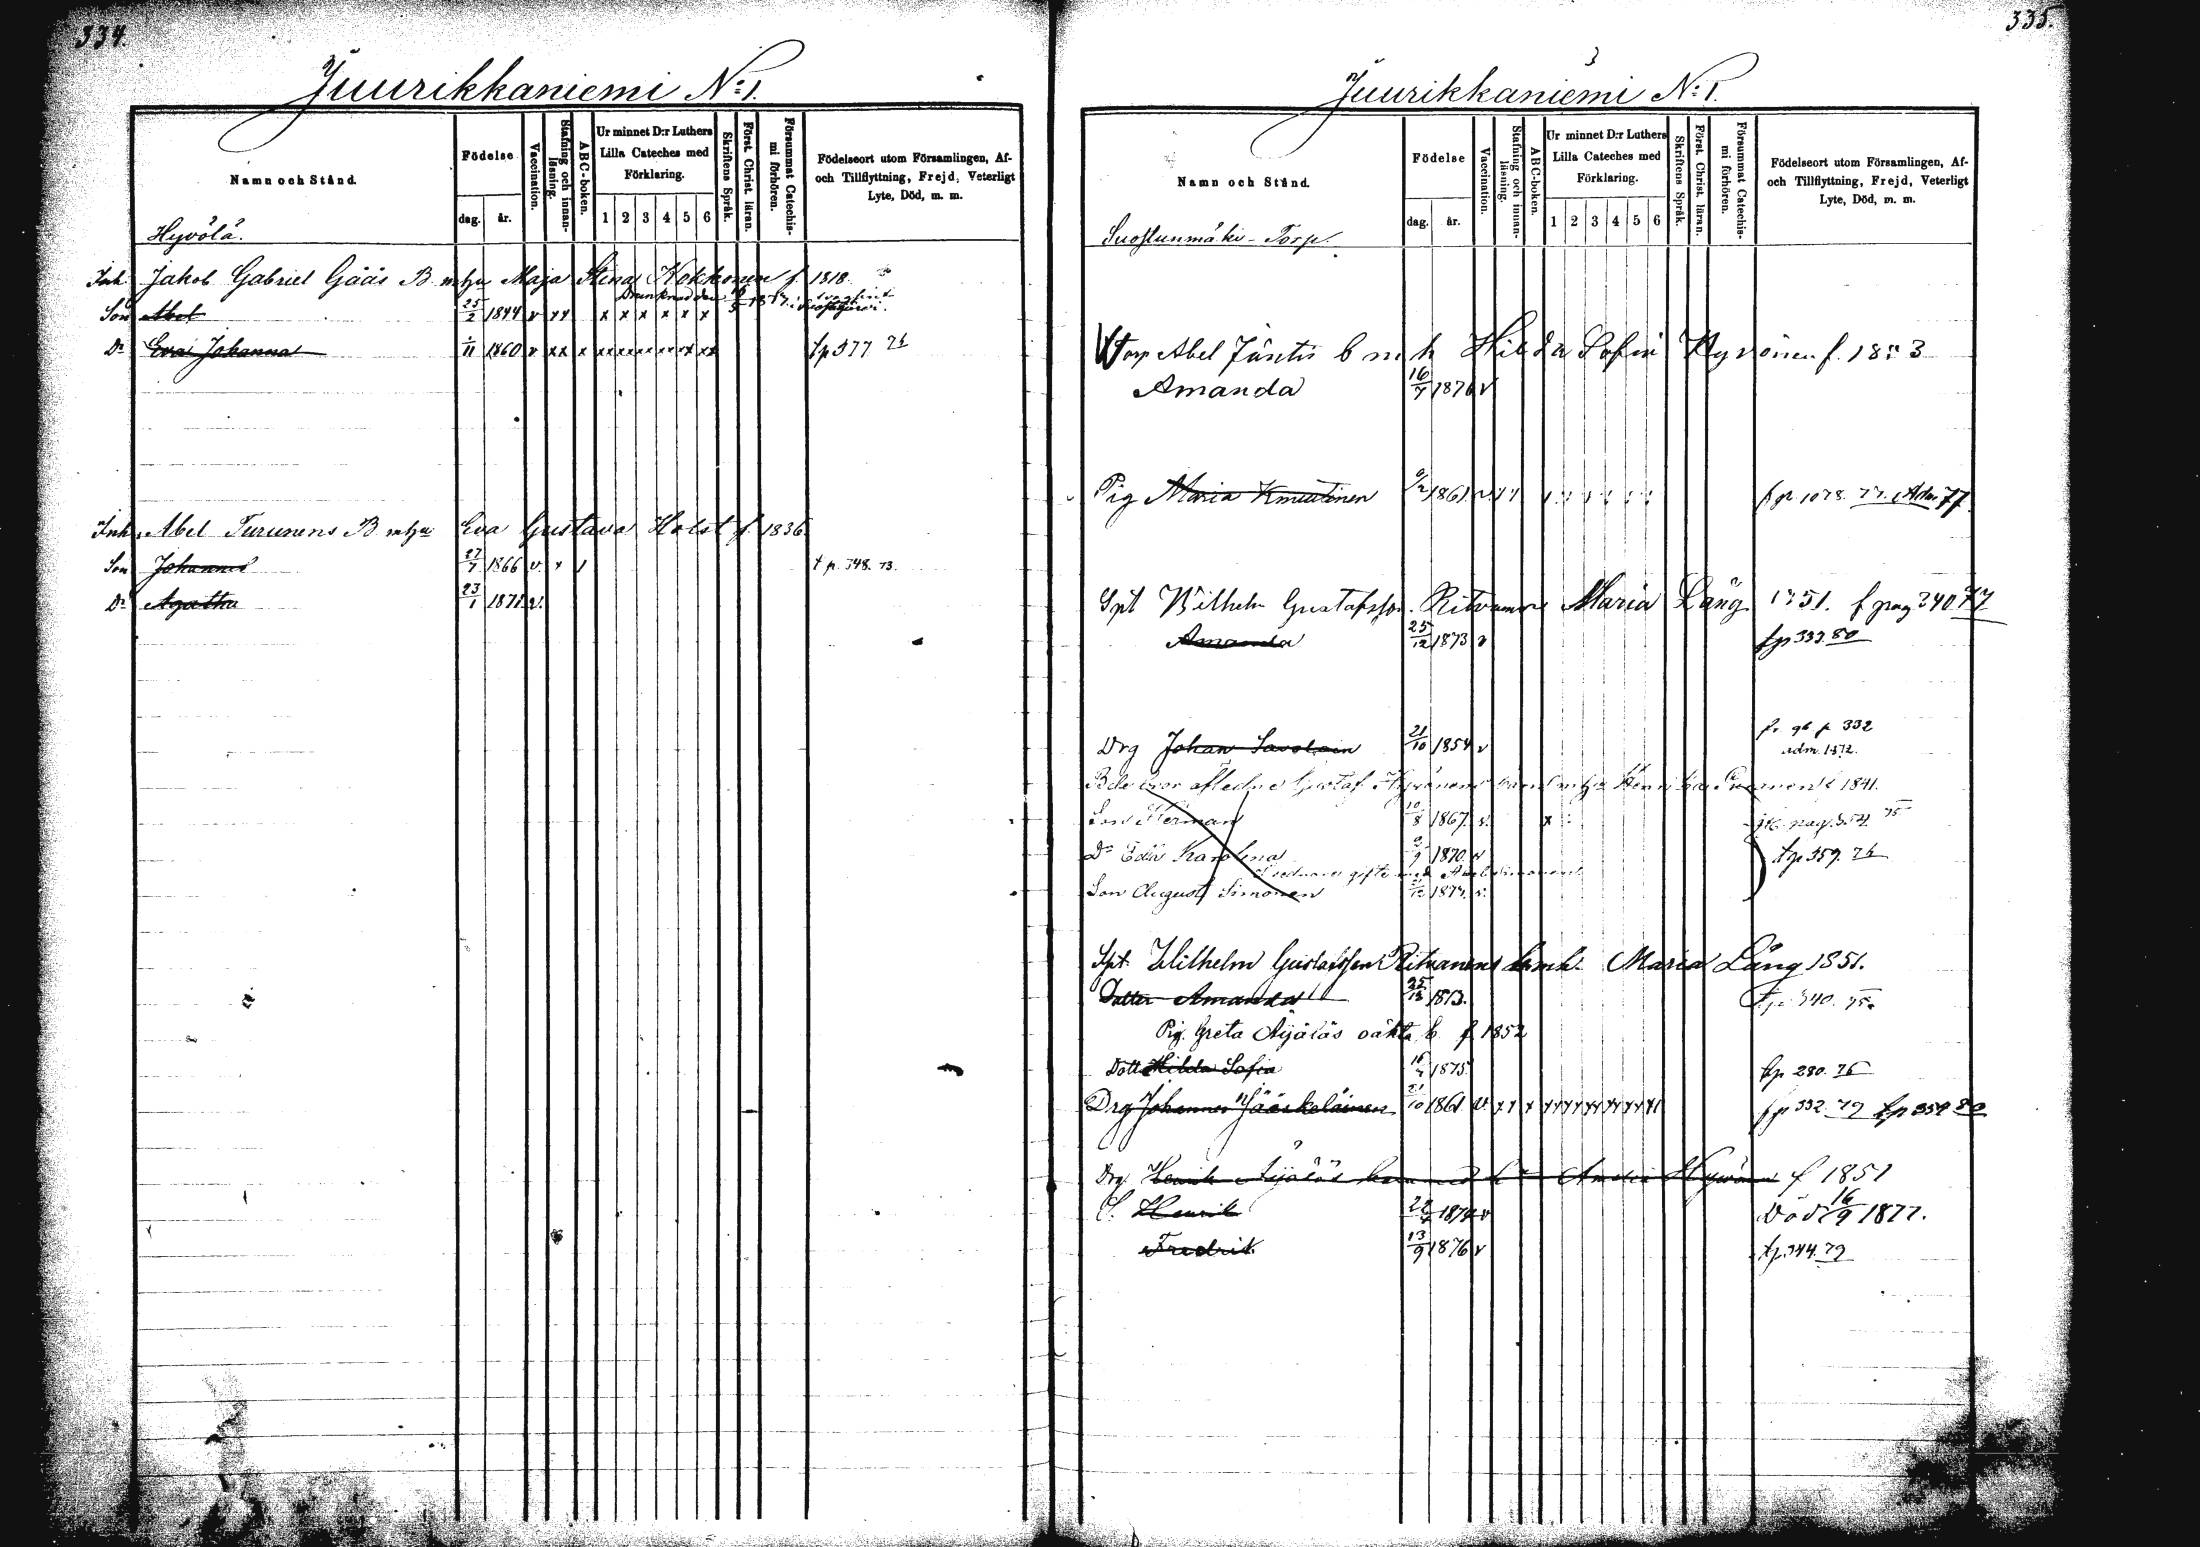 334.
Juurikkaniemi N:1.
Namn och Stånd.
Födelse
dag. år.
Vaccination.
Stafning och innanläsning.
ABC-boken.
Ur minnet D:r Luthers Lilla Cateches med Förklaring.
1 2 3 4 5 6
Skriftens Språk.
Först. Christ. läran.
Försummat Catechismi förhören.
Födelseort utom Församlingen, Af- och Tillflyttning, Frejd, Veterligt Lyte, Död, m. m.
Hyvölä.
Inh. Jakob Gabriel Gääs B. m hu Maja Stina Kokkonen f. 1818.
Son Abel 25/2 1844 v xx x x x x x x
Dr Eva Johanna 1/11 1860 v xx x xx xx xx xx xx xx tp 377 76
Inh. Abel Turunens B m hu Eva Gustava Holst f. 1836
Son Johannes 27/7 1866 v. x / t p. 348. 73.
Dr Agatha 23/1 1871 v.
335.
Juurikkaniemi N:1.
Namn och Stånd.
Födelse
dag. år.
Vaccination.
Stafning och innanläsning.
ABC-boken.
Ur minnet D:r Luthers Lilla Cateches med Förklaring.
1 2 3 4 5 6
Skriftens Språk.
Först. Christ. läran.
Försummat Catechismi förhören.
Födelseort utom Församlingen, Af- och Tillflyttning, Frejd, Veterligt Lyte, Död, m. m.
Suostunmäki - Torp.
Torp Abel Jäntis b m h Hilda Sofia Hyvönen f. 1853
Amanda 16/7 1876 v
Pig Maria Knuutinen 1861 v fp 1078. 77. Adm 77
Spt Wilhelm Gustafsson Ritvanens Maria Läng 1851. f pag 340 77
Amanda 25/12 1873 v tp 333 80
Drg Johan Savolain 21/10 1854 v fr. p 332
adm. 1872.
Gustaf Hyvönens f 1841.
Son Herman 10/8 1867. v. x pag. 354. 75
Dr Eda Karolina 1870. v tp 359. 76
gifte med Abel Simonen
Son August Simonen 1874. v.
Spt. Wilhelm Gustafsson Ritvanens b m h. Maria Läng 1851.
Dotter Amanda 25/12 1873. tp. 340. 75.
Pig. Greta Äijäläs oäkta b. f. 1852
Dott Hilda Sofia 1875. tp 280. 76
Drg Johannes Jääskeläinen 21/10 1861 v. fp 332 79 tp 354 80
Drg Henrik Äijäläs Hyvönen f 1851
S. Henrik 1874 v Död 16/9 1877.
Fredrik 13/9 1876 v tp. 344. 79